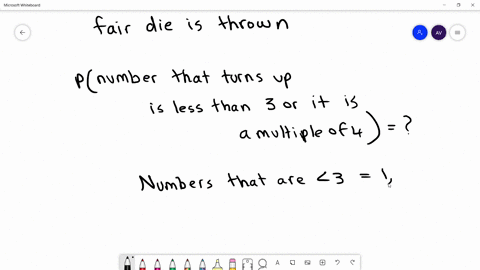 Microsoft Whiteboard
AV
fair die is thrown
P(number that turns up
is less than 3 or it is
a multiple of 4) = ?
Numbers that are <3 = 1,